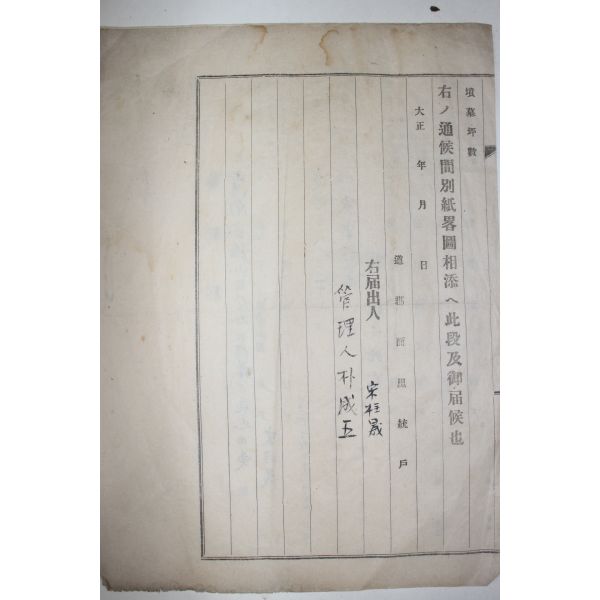 墳墓坪數
右ノ通候間別紙畧圖相添ヘ此段及御屆候也
大正 年 月 日
道 郡 面 里 統 戶
右屆出人 宋柱晟
管理人 朴成五